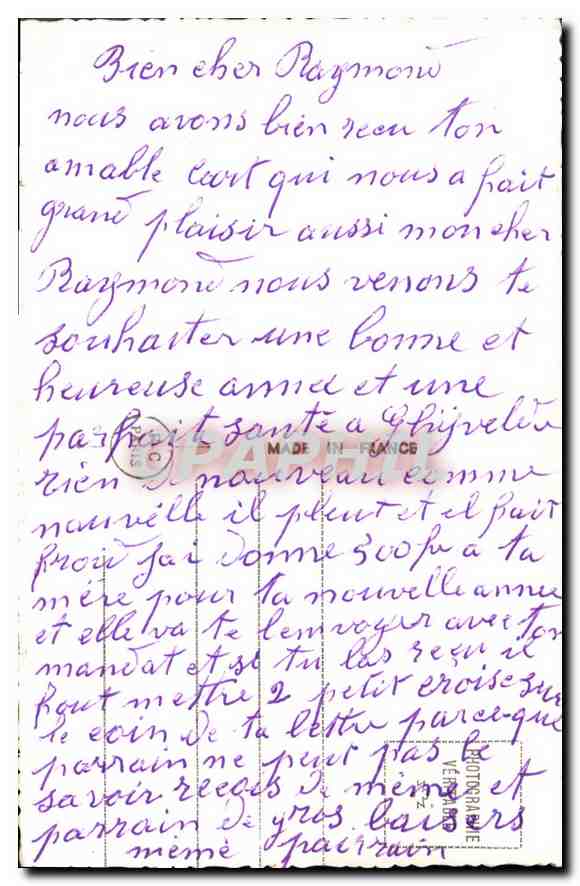 Bien cher Raymond
nous avons bien recu ton
amable cart qui nous a fait
grand plaisir aussi mon cher
Raymond nous venons te
souhaiter une bonne et
heureuse annee et une
parfait santé a Ghyvelde
MADE IN FRANCE
rien de nouveau comme
nouvelle il pleut et il fait
froid jai donne 500fr a ta
mère pour ta nouvelle annee
et elle va te lenvoyer avec ton
mandat et si tu las reçu il
faut mettre 2 petit croise sur
le coin de ta lettre parce que
parrain ne peut pas le
savoir recois de mémé et
parrain de gros baisers
mémé parrain
PHOTOGRAPHIE
VÉRITABLE